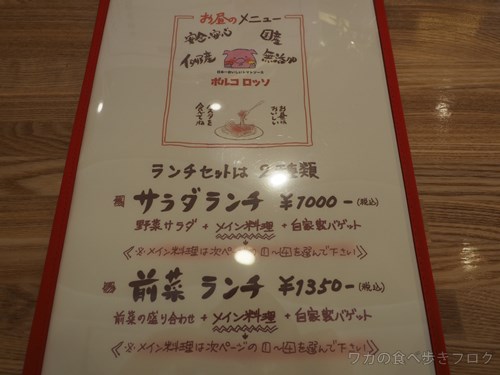 お昼のメニュー
国産
無添加
ポルコ ロッソ
ランチセットは 2種類
サラダランチ ¥1000-(税込)
野菜サラダ + メイン料理 + 自家家バゲット
《※メイン料理は次ページの を選んで下さい》
前菜 ランチ ¥1350-(税込)
前菜の盛り合わせ + メイン料理 + 自家家バゲット
《※メイン料理は次ページの を選んで下さい》
ワカの食べ歩きブログ